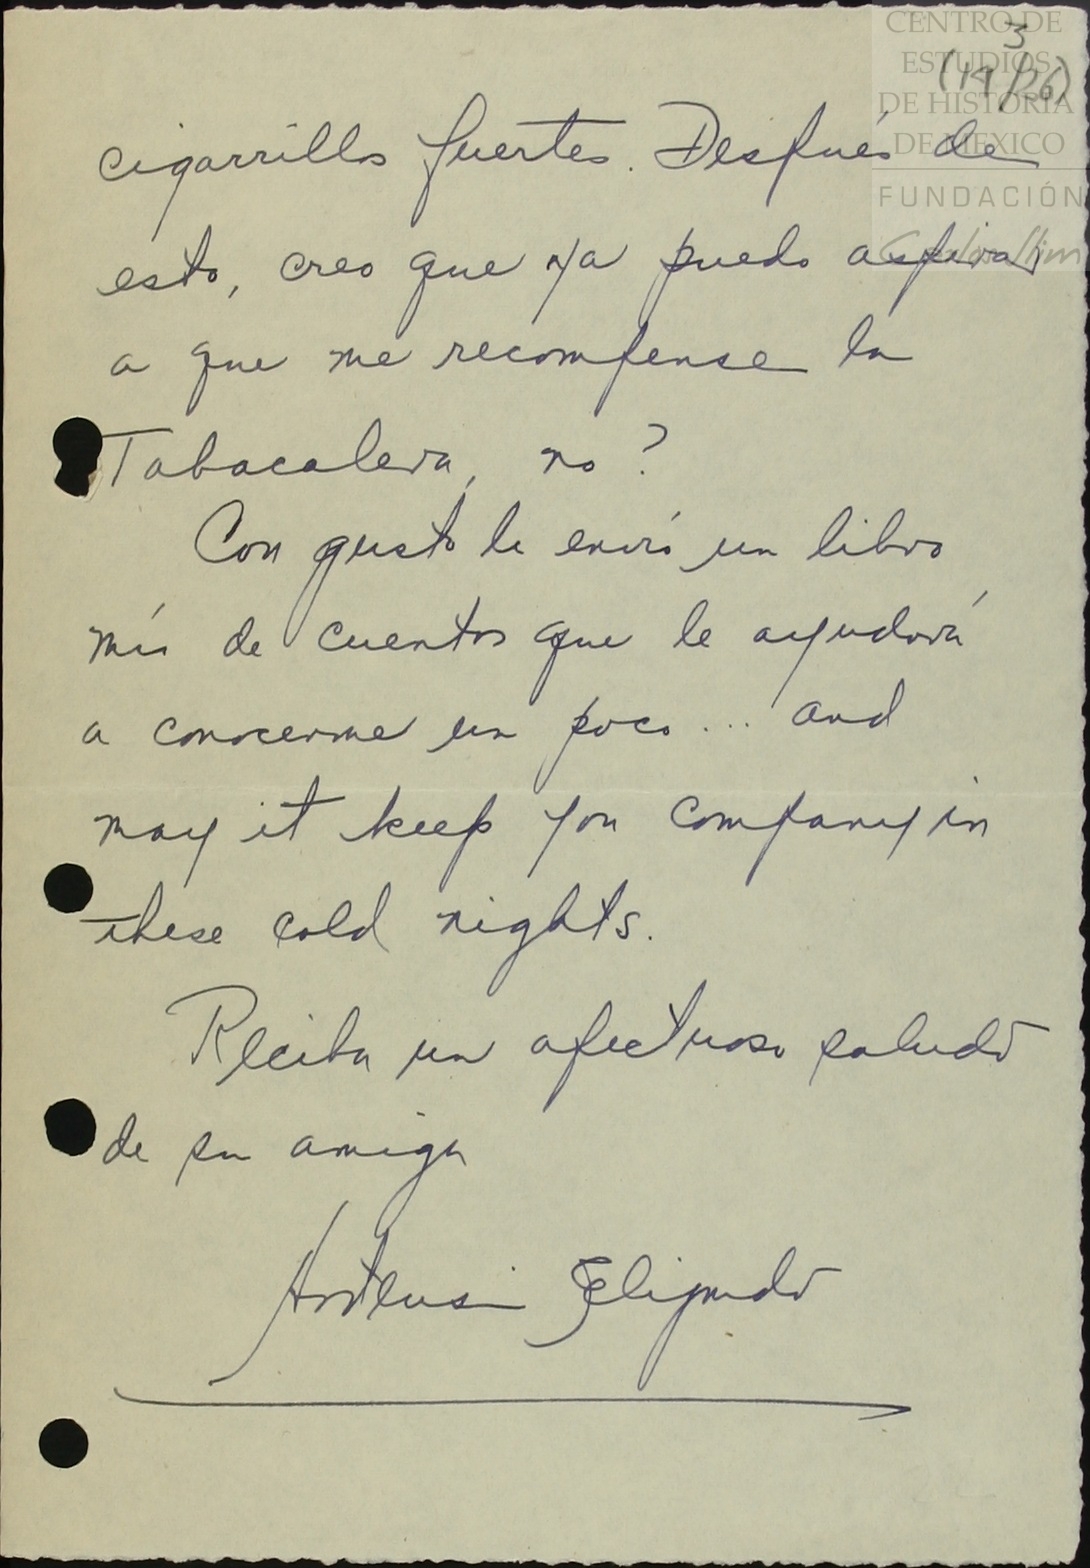 CENTRO DE
ESTUDIOS
DE HISTORIA
DE MEXICO
FUNDACIÓN
3
(19/26)
cigarrillos fuertes. Después de
esto, creo que ya puedo aspirar
a que me recompense la
Tabacalera, no?
Con gusto le envío un libro
mío de cuentos que le ayudará
a conocerme un poco... and
may it keep you company in
these cold nights.
Reciba un afectuoso saludo
de su amiga